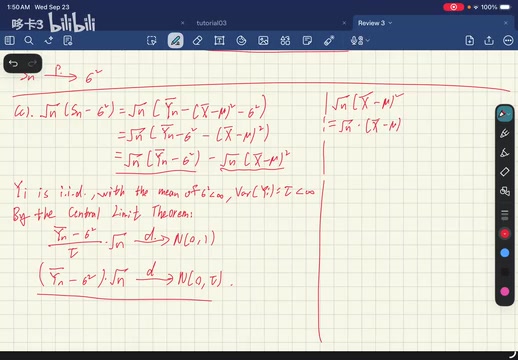 1:50 AM Wed Sep 23
100%
哆卡3 bilibili
tutorial03
Review 3
Sn —P.→ 6²
(c). √n (Sn - 6²) = √n [Ȳn - (X̄-μ)² - 6²)
= √n (Ȳn - 6² - (X̄-μ)²)
= √n (Ȳn - 6²) - √n (X̄-μ)²
Yi is i.i.d., with the mean of 6²<∞, Var(Yi) = τ < ∞
By the Central Limit Theorem:
(Ȳn - 6²)/τ · √n —d.→ N(0,1)
(Ȳn - 6²) · √n —d→ N(0, τ).
√n (X̄-μ)²
= √n · (X̄-μ)